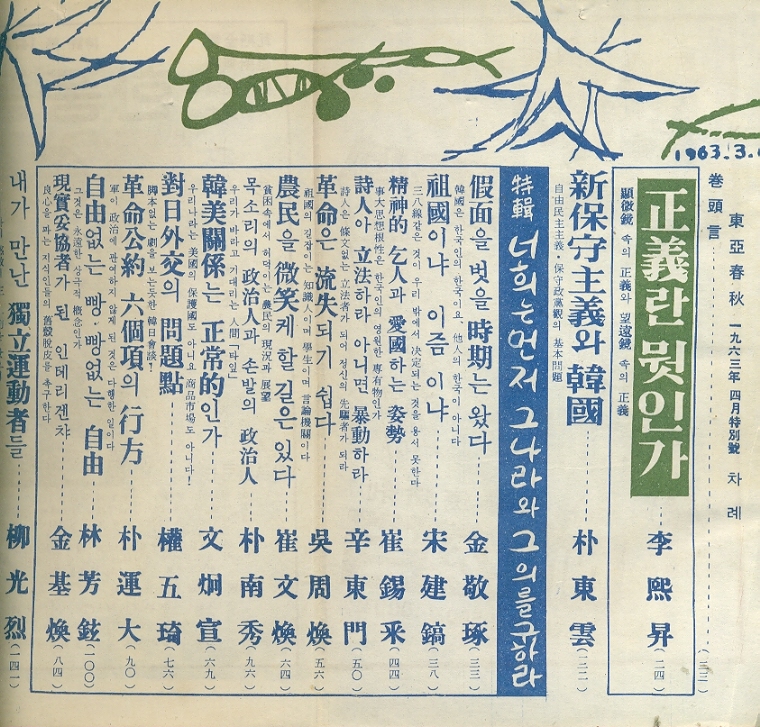 1963.3.
東亞春秋 一九六三年 四月特別號 차례
巻頭言 (二三)
正義란 뭣인가 李熙昇 (二四)
顯微鏡 속의 正義와 望遠鏡 속의 正義
新保守主義와 韓國 朴東雲 (一二二)
自由民主主義·保守政黨觀의 基本問題
特輯 너희는 먼저 그 나라와 그 의를 구하라
假面을 벗을 時期는 왔다 金敬琢 (三三)
韓國은 한국인의 한국이요, 他人의 한국이 아니다
祖國이냐 이즘이냐 宋建鎬 (三八)
三八線같은 것이 우리 밖에서 決定되는 것을 용서 못한다
精神的 乞人과 愛國하는 姿勢 崔錫采 (四四)
事大思想根性은 한국인의 영원한 專有物인가
詩人아 立法하라 아니면 暴動하라 辛東門 (五〇)
詩人은 條文없는 立法者가 되어 정신의 先驅者가 되라
革命은 流失되기 쉽다 吳周煥 (五六)
祖國의 길잡이는 知識人이며 學生이며 言論機關이다
農民을 微笑케 할 길은 있다 崔文煥 (六四)
貧困속에서 허덕이는 農民의 現況과 展望
목소리의 政治人과 손발의 政治人 朴南秀 (九六)
우리가 바라고 기대리는 人間「타잎」
韓美關係는 正常的인가 文炯宣 (六九)
우리나라는 美國의 保護國도 아니요 商品市場도 아니다!
對日外交의 問題點 權五琦 (七六)
脚本없는 劇을 보는듯한 韓日會談!
革命公約 六個項의 行方 朴運大 (九〇)
軍이 政治에 관여하지 않게 된 것은 다행한 일이다
自由없는 빵·빵없는 自由 林芳鉉 (一〇〇)
그것은 永遠한 상극적 槪念인가
現實妥協者가 된 인테리겐챠 金基煥 (八四)
良心을 파는 지식인들의 舊殼脫皮를 촉구한다
내가 만난 獨立運動者들 柳光烈 (一四一)